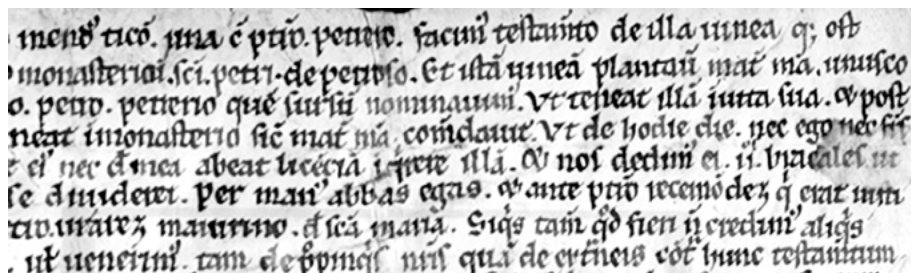 mend᷒ ticō. una c̄ ptr̄o. petreıo. facim᷒ testam̄to de illa uinea q; est
monasterium. sc̄i. petri. de petroso. Et istā uineā plantau̅ mat̄ ma. unusco
o. petro. petrerio quē sursū nominauim᷒. Vt teneat illā iuxta sua. & post
neat imonasterio sic̄ mat̄ ma. com̄dauit. Vt de hodie die. nec ego nec
ei᷒ nec d̄ mea abeat licēciā illā. & nos dedim᷒ ei. ii. bracales ut
se diuiderei. Per man᷒ abbas egas. & ante ptr̄o recemōdez q̄ erat
maiurino. d̄ scā maria. Siq̄s tam̄ q̄d fieri n̄ credim᷒ aliq̄s
ul̄ uenerim᷒. tam de p̄pinq̄s nr̄is quā de ext̄neis cōt̄ hunc testamtum